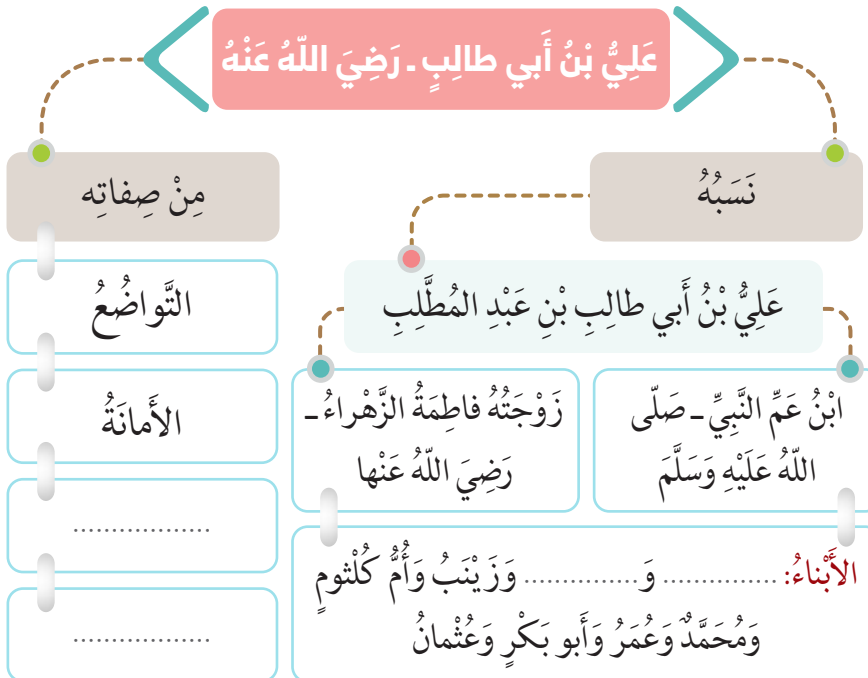 عَلِيُّ بْنُ أَبي طالِبٍ ـ رَضِيَ اللّهُ عَنْهُ
نَسَبُهُ
عَلِيُّ بْنُ أَبي طالِبِ بْنِ عَبْدِ المُطَّلِبِ
ابْنُ عَمِّ النَّبِيِّ ـ صَلّى
اللّهُ عَلَيْهِ وَسَلَّمَ
زَوْجَتُهُ فاطِمَةُ الزَّهْراءُ ـ
رَضِيَ اللّهُ عَنْها
الأَبْناءُ: ............... وَ............... وَزَيْنَبُ وَأُمُّ كُلْثومٍ
وَمُحَمَّدٌ وَعُمَرُ وَأَبو بَكْرٍ وَعُثْمانُ
مِنْ صِفاتِه
التَّواضُعُ
الأَمانَةُ
..................
..................